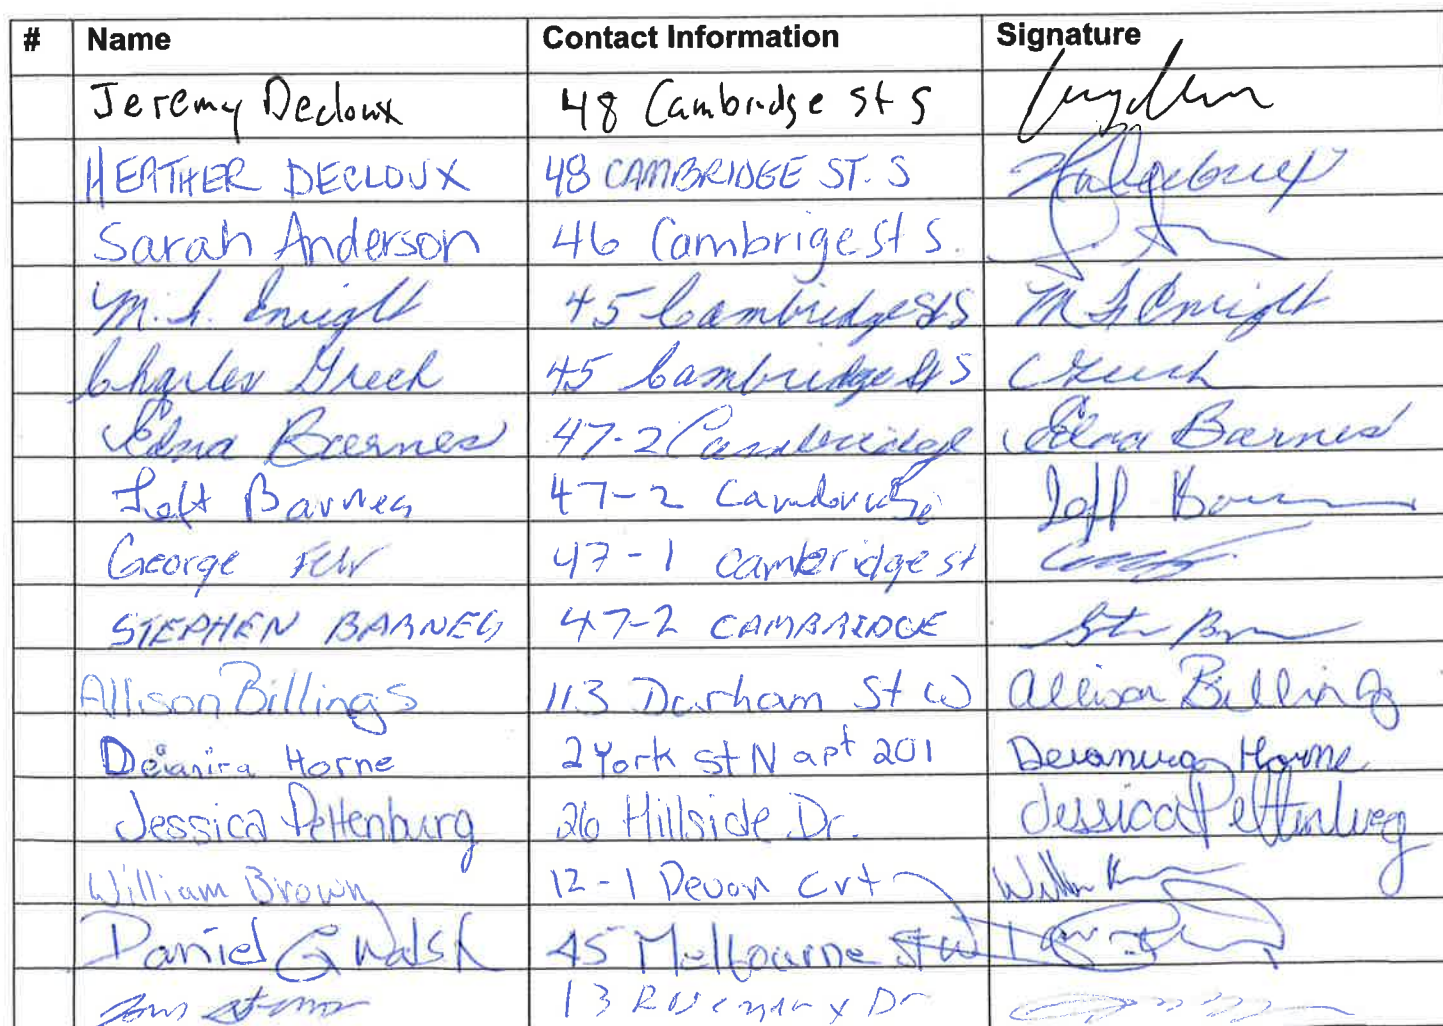 # Name Contact Information Signature
Jeremy Decloux 48 Cambridge St S
HEATHER DECLOUX 48 CAMBRIDGE ST. S
Sarah Anderson 46 Cambrige St S.
M. L. Enright 45 Cambridge St S M L Enright
Charles Greek 45 Cambridge St S
Edna Barnes 47-2 Cambridge Edna Barnes
Jeff Barnes 47-2 Cambridge Jeff
George 47-1 Cambridge st
STEPHEN BARNES 47-2 CAMBRIDGE
Allison Billings 113 Durham St W Allison Billings
Deianira Horne 2 York St N apt 201 Deianira Horne
Jessica Pettenburg 26 Hillside Dr. Jessica Pettenburg
William Brown 12-1 Devon Crt
Daniel G Walsh 45 Melbourne St W
13 Dr